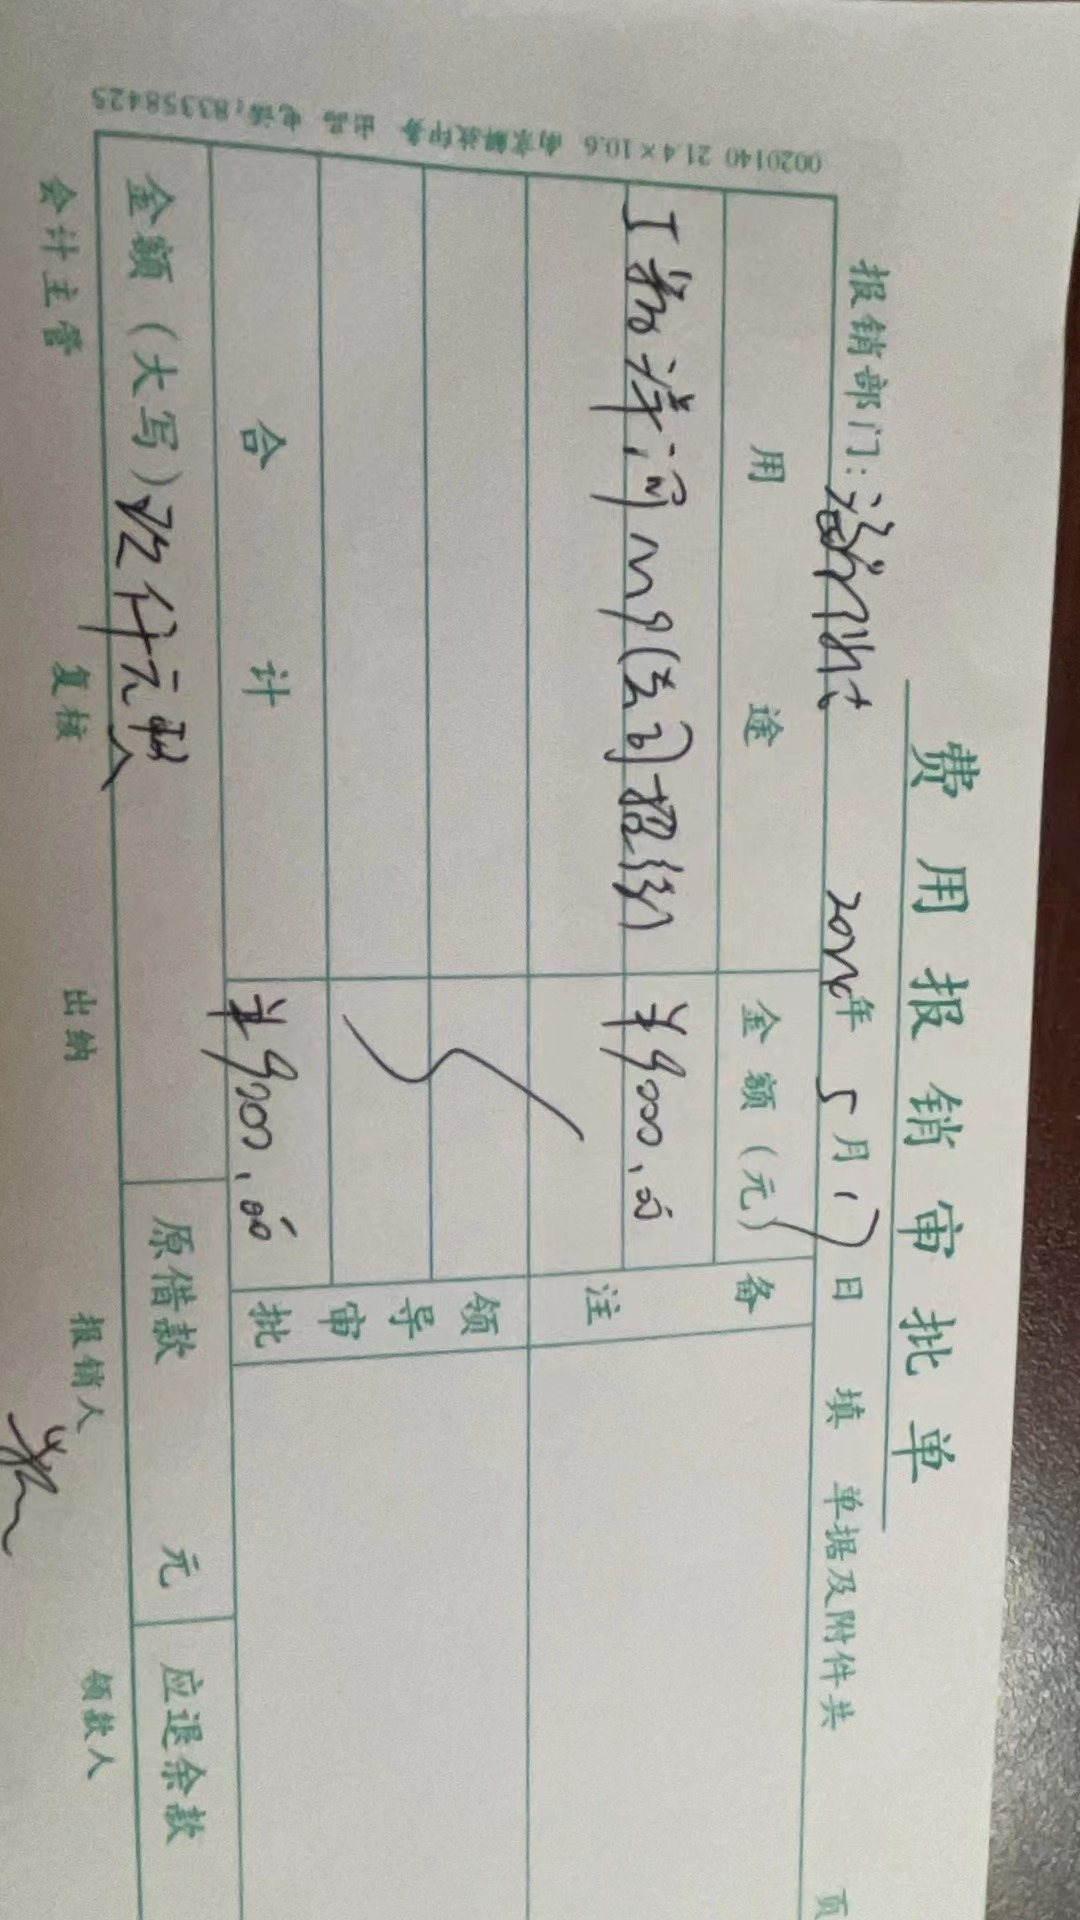 费用报销审批单
报销部门: 年 5月17日 填 单据及附件共 页
用途 金额(元) 备注
¥9000.00
领导审批
合计 ¥9000.00
金额(大写)玖仟元整 原借款 元 应退余款
会计主管 复核 出纳 报销人 领款人
0020140 21.4×10.6 南京解放印务 出品 电话:83358425